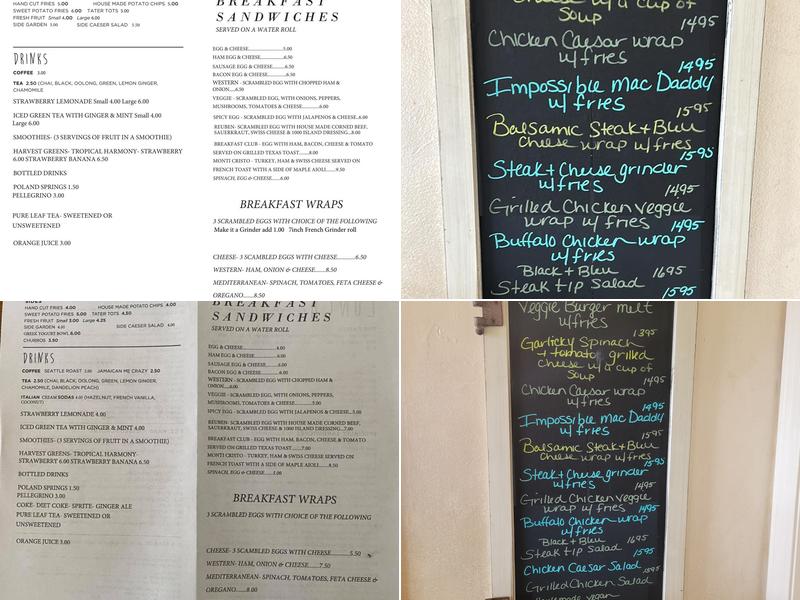 HAND CUT FRIES 6.00 HOUSE MADE POTATO CHIPS 5.00
SWEET POTATO FRIES 6.00 TATER TOTS 5.00
FRESH FRUIT Small 4.00 Large 6.00
SIDE GARDEN 5.00 SIDE CAESER SALAD 5.50
DRINKS
COFFEE 3.00
TEA 2.50 (CHAI, BLACK, OOLONG, GREEN, LEMON GINGER,
CHAMOMILE
STRAWBERRY LEMONADE Small 4.00 Large 6.00
ICED GREEN TEA WITH GINGER & MINT Small 4.00
Large 6.00
SMOOTHIES- (3 SERVINGS OF FRUIT IN A SMOOTHIE)
HARVEST GREENS- TROPICAL HARMONY- STRAWBERRY
6.00 STRAWBERRY BANANA 6.50
BOTTLED DRINKS
POLAND SPRINGS 1.50
PELLEGRINO 3.00
PURE LEAF TEA- SWEETENED OR
UNSWEETENED
ORANGE JUICE 3.00
BREAKFAST
SANDWICHES
SERVED ON A WATER ROLL
EGG & CHEESE.....................5.00
HAM EGG & CHEESE...................6.50
SAUSAGE EGG & CHEESE...................6.50
BACON EGG & CHEESE...................6.50
WESTERN - SCRAMBLED EGG WITH CHOPPED HAM &
ONION.....6.50
VEGGIE - SCRAMBLED EGG, WITH ONIONS, PEPPERS,
MUSHROOMS, TOMATOES & CHEESE............6.00
SPICY EGG - SCRAMBLED EGG WITH JALAPENOS & CHEESE..6.00
REUBEN- SCRAMBLED EGG WITH HOUSE MADE CORNED BEEF,
SAUERKRAUT, SWISS CHEESE & 1000 ISLAND DRESSING...8.00
BREAKFAST CLUB - EGG WITH HAM, BACON, CHEESE & TOMATO
SERVED ON GRILLED TEXAS TOAST........8.00
MONTI CRISTO - TURKEY, HAM & SWISS CHEESE SERVED ON
FRENCH TOAST WITH A SIDE OF MAPLE AIOLI........9.50
SPINACH, EGG & CHEESE......6.00
BREAKFAST WRAPS
3 SCRAMBLED EGGS WITH CHOICE OF THE FOLLOWING
Make it a Grinder add 1.00 7inch French Grinder roll
CHEESE- 3 SCAMBLED EGGS WITH CHEESE...............6.50
WESTERN- HAM, ONION & CHEESE.......8.50
MEDITERRANEAN- SPINACH, TOMATOES, FETA CHEESE &
OREGANO........8.50
Cheese w/ a cup of
Soup
1495
Chicken Caesar wrap
w/ fries
1495
Impossible Mac Daddy
w/ fries
1595
Balsamic Steak + Bleu
Cheese wrap w/ fries
1595
Steak + Cheese grinder
w/ fries
1495
Grilled Chicken Veggie
wrap w/ fries 1495
Buffalo Chicken wrap
w/ fries
Black + Bleu 1695
Steak tip Salad
1595
HAND CUT FRIES 4.00 HOUSE MADE POTATO CHIPS 4.00
SWEET POTATO FRIES 5.00 TATER TOTS 4.50
FRESH FRUIT Small 3.00 Large 4.25
SIDE GARDEN 4.00 SIDE CAESER SALAD 4.00
GREEK YOGURT BOWL 6.00
CHURROS 3.50
DRINKS
COFFEE SEATTLE ROAST 2.00 JAMAICAN ME CRAZY 2.50
TEA 2.50 (CHAI, BLACK, OOLONG, GREEN, LEMON GINGER,
CHAMOMILE, DANDELION PEACH)
ITALIAN CREAM SODAS 4.00 (HAZELNUT, FRENCH VANILLA,
COCONUT)
STRAWBERRY LEMONADE 4.00
ICED GREEN TEA WITH GINGER & MINT 4.00
SMOOTHIES- (3 SERVINGS OF FRUIT IN A SMOOTHIE)
HARVEST GREENS- TROPICAL HARMONY-
STRAWBERRY 6.00 STRAWBERRY BANANA 6.50
BOTTLED DRINKS
POLAND SPRINGS 1.50
PELLEGRINO 3.00
COKE- DIET COKE- SPRITE- GINGER ALE
PURE LEAF TEA- SWEETENED OR
UNSWEETENED
ORANGE JUICE 3.00
BREAKFAST
SANDWICHES
SERVED ON A WATER ROLL
EGG & CHEESE.....................4.00
HAM EGG & CHEESE...................6.00
SAUSAGE EGG & CHEESE...................6.00
BACON EGG & CHEESE...................6.00
WESTERN - SCRAMBLED EGG WITH CHOPPED HAM &
VEGGIE - SCRAMBLED EGG, WITH ONIONS, PEPPERS,
MUSHROOMS, TOMATOES & CHEESE............5.00
SPICY EGG - SCRAMBLED EGG WITH JALAPENOS & CHEESE...5.00
REUBEN- SCRAMBLED EGG WITH HOUSE MADE CORNED BEEF,
SAUERKRAUT, SWISS CHEESE & 1000 ISLAND DRESSING...7.00
BREAKFAST CLUB - EGG WITH HAM, BACON, CHEESE & TOMATO
SERVED ON GRILLED TEXAS TOAST........7.00
MONTI CRISTO - TURKEY, HAM & SWISS CHEESE SERVED ON
FRENCH TOAST WITH A SIDE OF MAPLE AIOLI........8.50
SPINACH, EGG & CHEESE......5.00
BREAKFAST WRAPS
3 SCRAMBLED EGGS WITH CHOICE OF THE FOLLOWING
CHEESE- 3 SCAMBLED EGGS WITH CHEESE...............5.50
WESTERN- HAM, ONION & CHEESE.......7.50
MEDITERRANEAN- SPINACH, TOMATOES, FETA CHEESE &
OREGANO........8.00
Veggie Burger melt
w/ fries
1395
Garlicky Spinach
+ tomato grilled
Cheese w/ a cup of
Soup
1495
Chicken Caesar wrap
w/ fries
1495
Impossible Mac Daddy
w/ fries
1595
Balsamic Steak + Bleu
Cheese wrap w/ fries
1595
Steak + Cheese grinder
w/ fries
1495
Grilled Chicken Veggie
wrap w/ fries 1495
Buffalo Chicken wrap
w/ fries
Black + Bleu 1695
Steak tip Salad
1595
Chicken Caesar Salad 1595
Grilled Chicken Salad